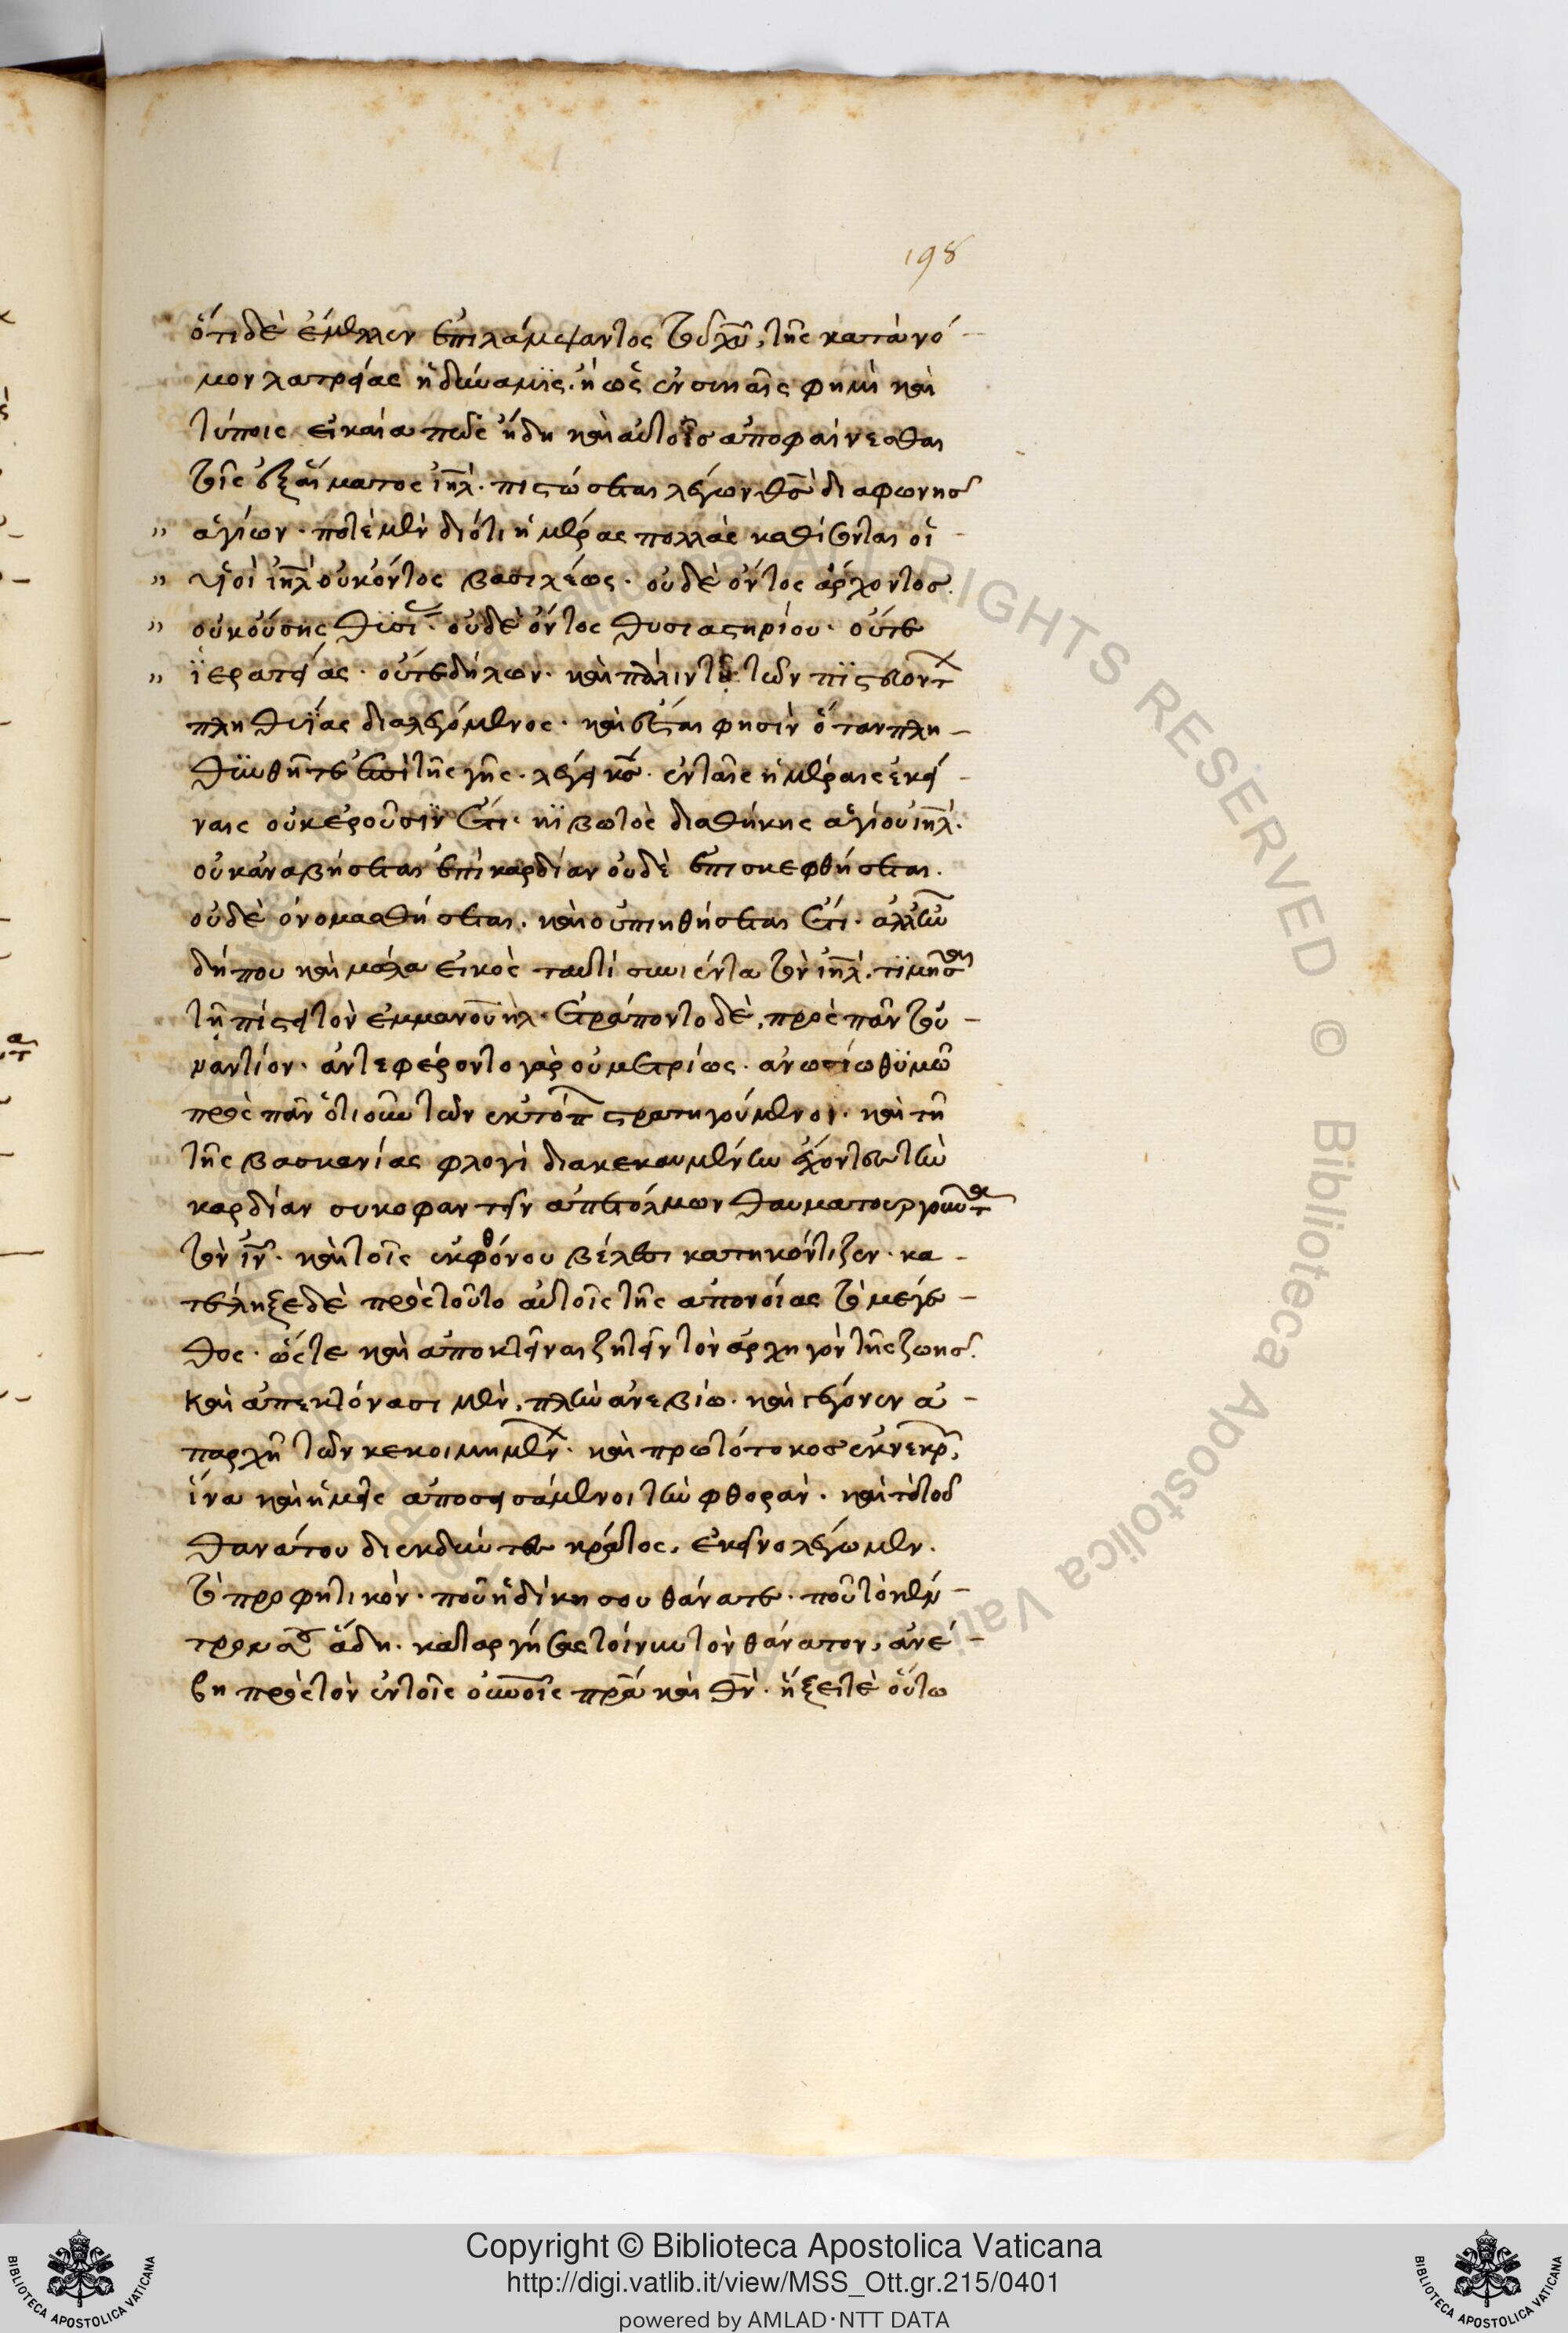 198
ὅτι δὲ ἔμελλεν ἐπιλάμψαντος τοῦ χυ, τῆς κατὰ νό–
μον λατρείας ἡ δύναμϊς. ἡ ὡς ἐν σκιαῖς φημὶ καὶ
τύποις εἰκαία πως ἤδη καὶ αὐτοῖς ἀποφαίνεσθαι
τοῖς ἐξ αἵματος ιηλ. πιστώσεται λέγων θς διὰ φωνῆς
" ἁγίων. ποτὲ μὲν διότι ἡμέρας πολλὰς καθίσονται οἱ
" υἱοὶ ιηλ οὐκ ὄντος βασιλέως. οὐδὲ ὄντος ἄρχοντος.
" οὐκ οὔσης θϋσί. οὐδὲ ὄντος θυσιαστηρίου. οὔτε
" ϊερατείας. οὔτε δήλων. καὶ πάλιν τῶν πϊστευόντ
πληθύος διαλεγόμενος. καὶ ἔσται φησὶν ὅταν πλη–
θϋνθῆτε ἐπὶ τῆς γῆς. λέγει κς. ἐν ταῖς ἡμέραις ἐκεί–
ναις οὐκ ἐροῦσϊν ἔτι. κϊβωτὸς διαθήκης ἁγίου ιηλ.
οὐκ ἀναβήσεται ἐπὶ καρδίαν οὐδὲ ἐπισκεφθήσεται.
οὐδὲ ὀνομασθήσεται. καὶ οὐ ποιηθήσεται ἔτι. ἀλλ' ἦν
δήπου καὶ μάλα εἰκὸς ταυτὶ συνιέντα τὸν ιηλ. τϊμῆσαι
τῇ πίστει τὸν ἐμμανουήλ. ἐτράποντο δὲ, πρὸς πᾶν τοὐ–
ναντίον. ἀντεφέροντο γὰρ οὐ μετρίως. ἀνοσίω θϋμῶ
πρὸς πᾶν ὁτιοῦν τῶν ἐκτόπ στρατηγούμενοι. καὶ τῇ
τῆς βασκανίας φλογὶ διακεκαυμένην ἔχοντες τὴν
καρδίαν συκοφαντεῖν ἀπετόλμων θαυματουργοῦντα
τὸν ιν. καὶ τοῖς ἐκ φθόνου βέλεσι κατηκόντιζον. κα–
τέληξε δὲ πρὸς τοῦτο αὐτοῖς τῆς ἀπονοίας τὸ μέγε–
θος. ὥστε καὶ ἀποκτεῖναι ζητεῖν τὸν ἀρχηγὸν τῆς ζωῆς.
καὶ ἀπεκτόνασι μὲν. πλὴν ἀνεβίω. καὶ γέγονεν ἀ–
παρχὴ τῶν κεκοιμημέν. καὶ πρωτότοκος ἐκ νεκρ,
ἵνα καὶ ἡμεῖς ἀποσεισάμενοι τὴν φθορὰν. καὶ τὸ τοῦ
θανάτου διεκδύντες κράτος, ἐκεῖνο λέγωμεν.
τὸ προφητικὸν. ποῦ ἡ δίκη σου θάνατε. ποῦ τὸ κέν–
τρον σου ἅδη. καταργήσας τοίνυν τὸν θάνατον, ἀνέ–
βη πρὸς τὸν ἐν τοῖς οὐνοῖς πρα καὶ θν. ἥξει τὲ οὕτω
Copyright © Biblioteca Apostolica Vaticana
http://digi.vatlib.it/view/MSS_Ott.gr.215/0401
powered by AMLAD·NTT DATA
BIBLIOTECA APOSTOLICA VATICANA
BIBLIOTECA APOSTOLICA VATICANA